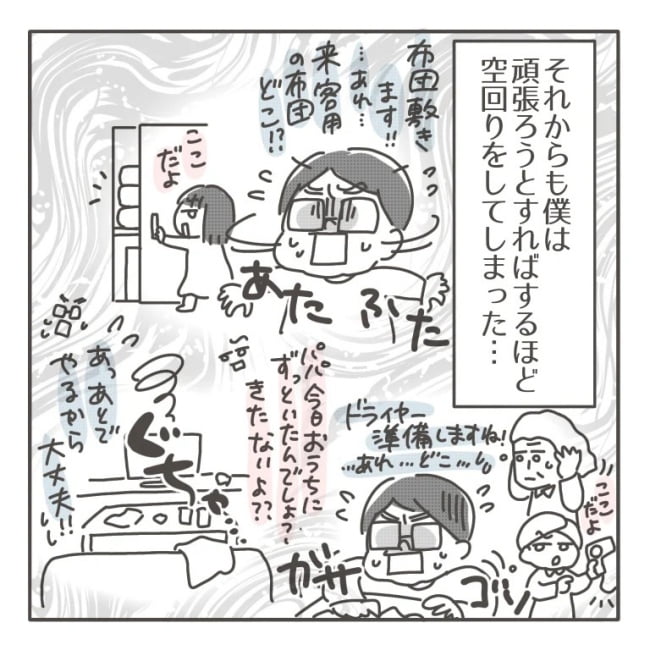 それからも僕は
頑張ろうとすればするほど
空回りをしてしまった…
布団敷き
ます!!
…あれ…
来客用
の布団
どこ!?
ここ
だよ
あたふた
パパ今日おうちに
ずっといたんでしょ?
きたないよ??
あっあとで
やるから
大丈夫!!
ぐちゃ…
ドライヤー
準備しますね!
…あれ…どこ…
ここ
だよ
ガサ
ゴソ